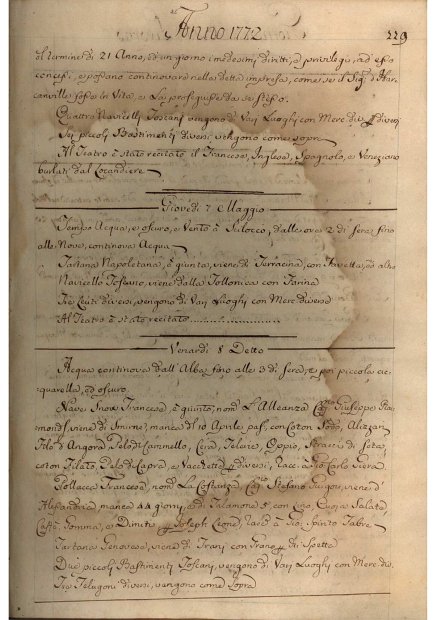 Anno 1772
229
el termine di 21 Anno, ed un giorno i medesimi diritti, e privilegi, ad esso
concessi, e possano continovare nella detta impresa, come se il Sig.
fosse in Vita, e Lui proseguisse da se stesso.
Quattro Navicelli Toscani vengono di Varj Luoghi con Merc. div.
Sei piccoli Bastimenti diversi vengono come sopra
Al Teatro è stato recitato il Francese, Inglese, Spagnolo, e Veneziano
burlati dal Locandiere
Giovedì 7 Maggio
Tempo Acqua, e oscuro, e Vento a Scilocco, dalle ore 2 di sera fino
alle Nove, continova Acqua
Tartana Napoletana, è giunta, viene di Terracina, con Favetta, ed altro
Navicello Toscano, viene dalla Follonica con Farina
Tre Leuti diversi, vengono di Varj Luoghi con Merc. diverse
Al Teatro è stato recitato
Venardi 8 Detto
Acqua continova dall'Alba, fino alle 3 di sera, e poi piccola
acquarella, ed oscuro
Nave Snow Francese, è giunto, nom. L'Alleanza Cap. Giuseppe
viene di Smirne, manca di 10 Aprile pas. con Coton Sodo, Alizari
Filo d'Angora, Pelo di Cammello, Cera, Telerie, Oppio, Stracci di Seta,
Coton Filato, Pelo di Capra, e Vacchette diversi, racc. a
Pollacca Francese, nom. La Costanza, Cap. Stefano viene d'
Alessandria manca 44 giorni, e di Palamos 5 con Lino, Cuoja Salate
Caffè, Gomma, e Dimiti Joseph racc. a
Tartana Genovese, viene di Trani con Grano
Due piccoli Bastimenti Toscani, vengono di Varj Luoghi con Merc. div.
Tre Felugoni diversi, vengono come sopra